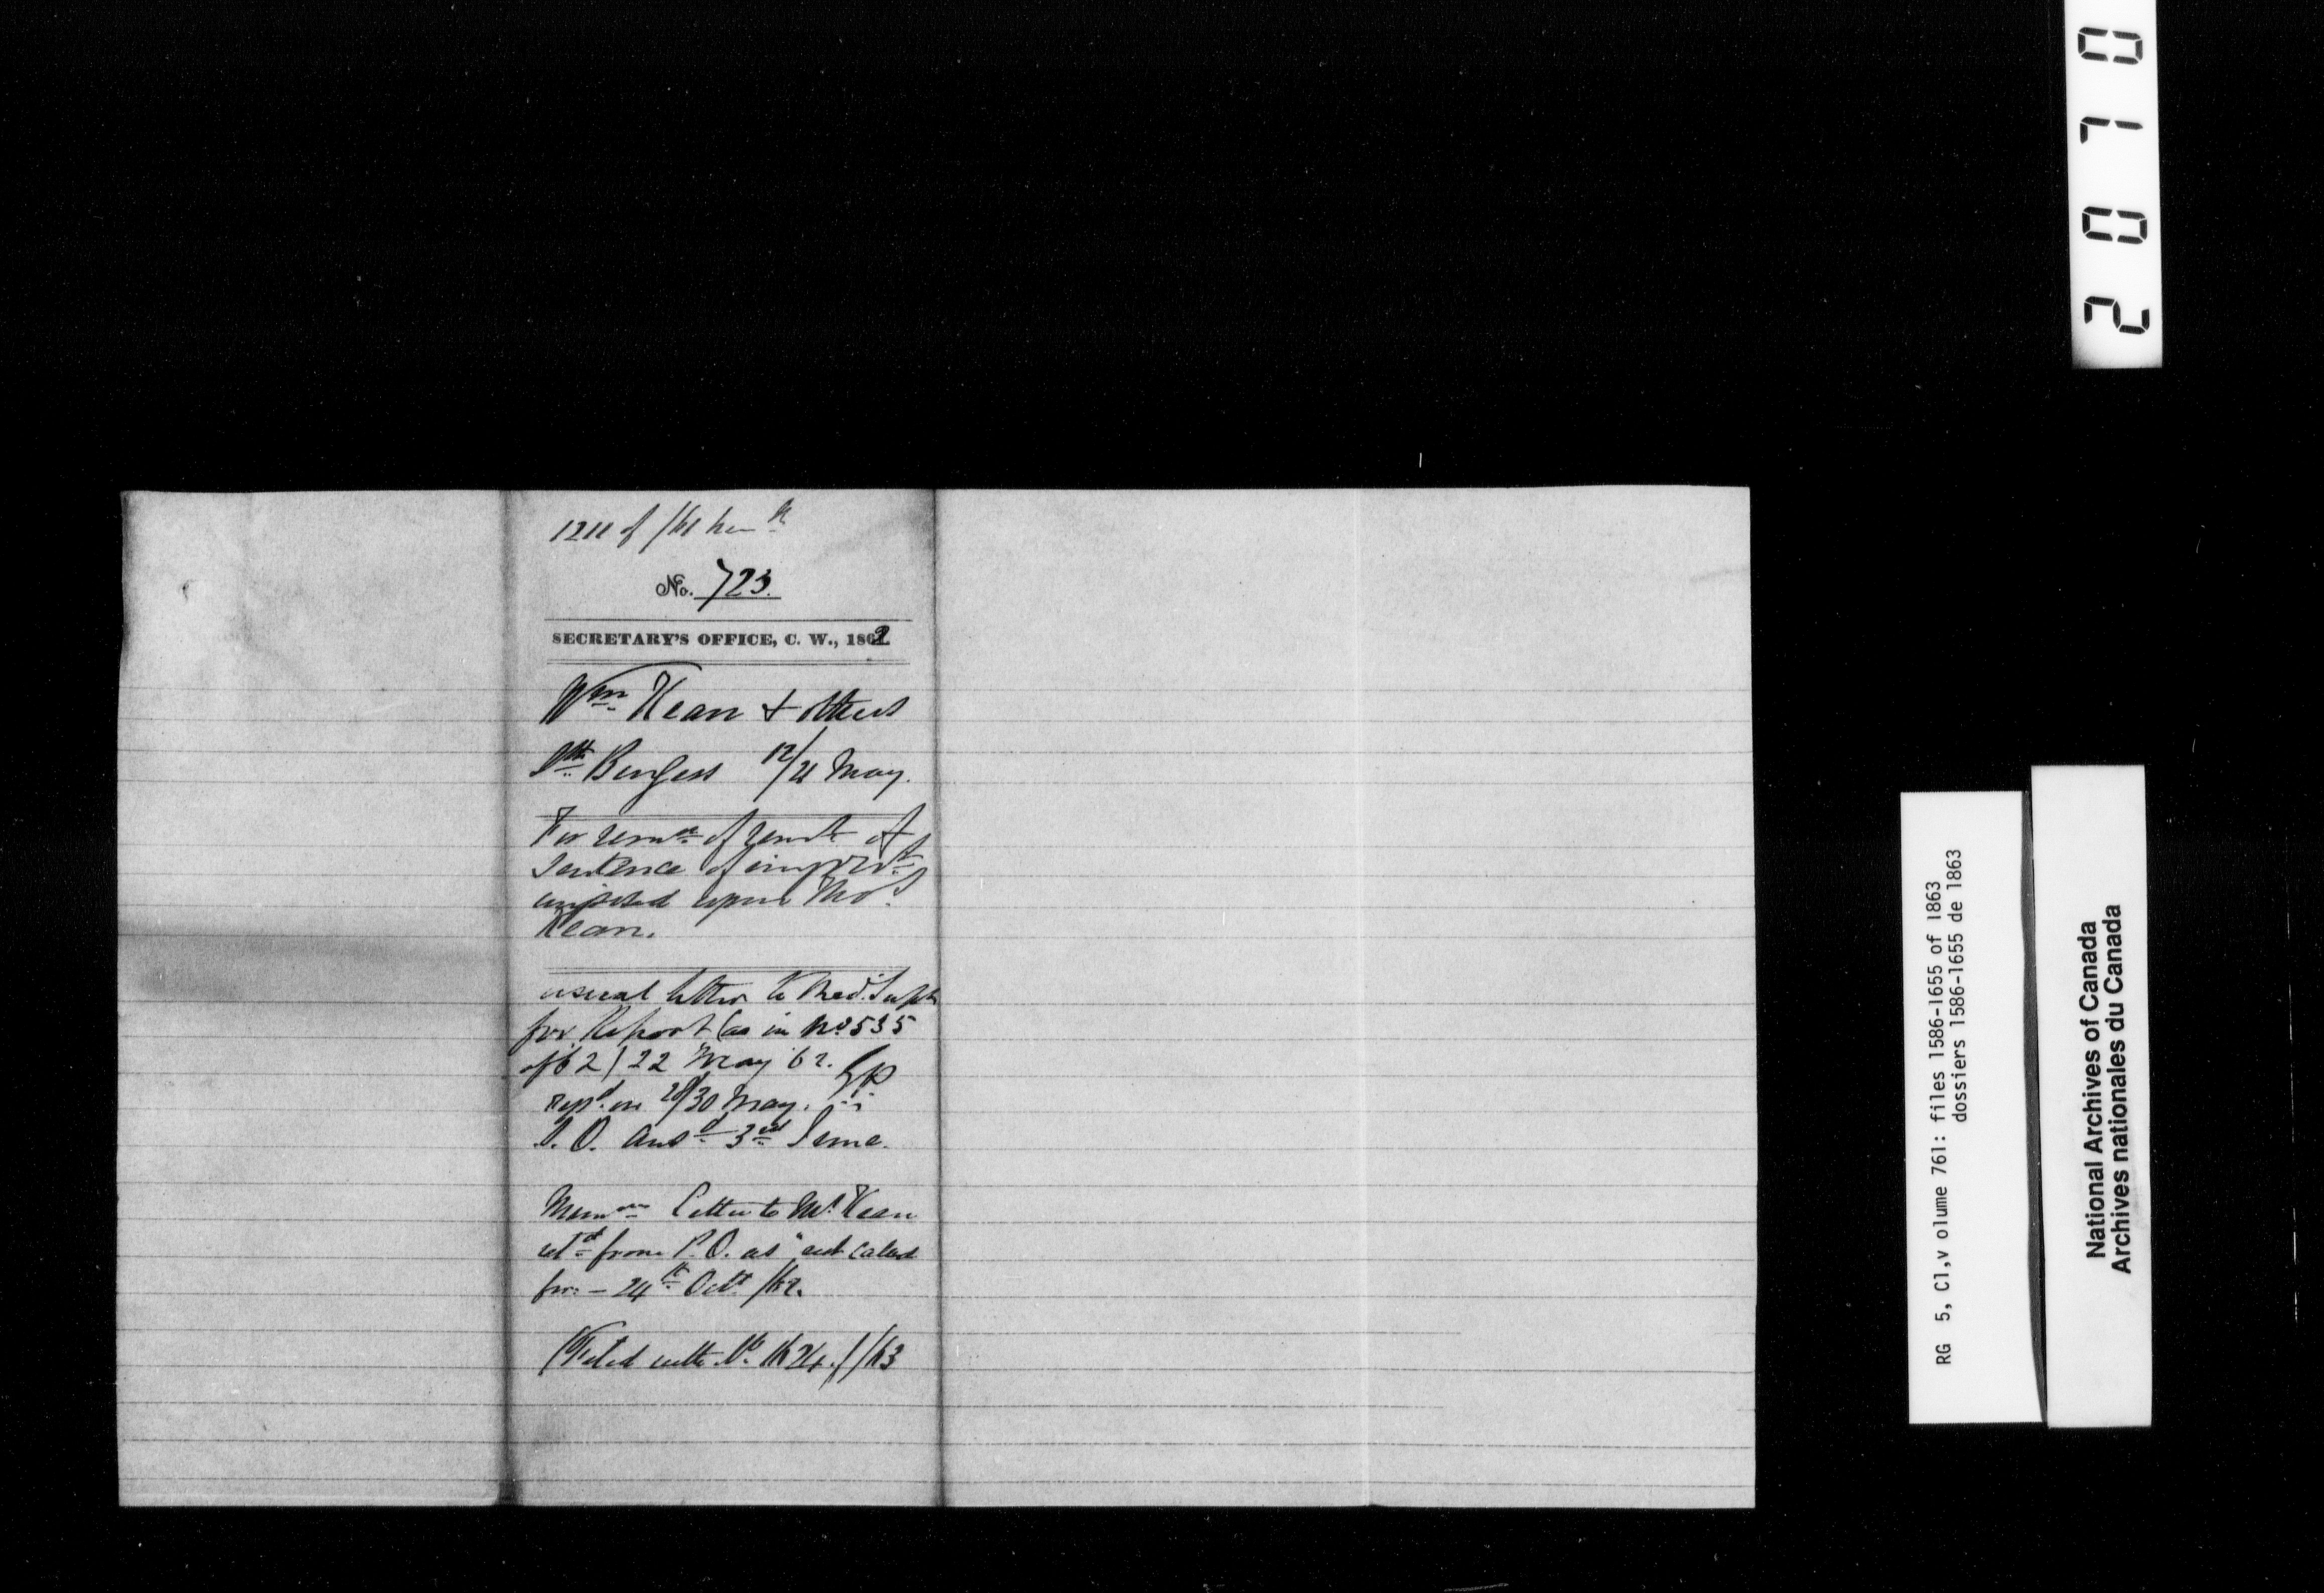 1211 of /61 her th
No. 723.
SECRETARY'S OFFICE, C. W., 1862
Wm Kean & others
Sth Burgess 12/21 May.
For remn of remdr of
sentence of imprist
imposed upon Thos
Kean.
usual letter to Med. Supt
for Report (as in No 535
of 62) 22 May 62.
Repd on 28/30 May.
P.O. ansd 3rd June.
Memm Letter to Mr Kean
retd from P.O. as "not called
for - 24th Octr /62.
(Filed with No. 1624 of /63
2070
RG 5, C1,v olume 761: files 1586-1655 of 1863
dossiers 1586-1655 de 1863
National Archives of Canada
Archives nationales du Canada